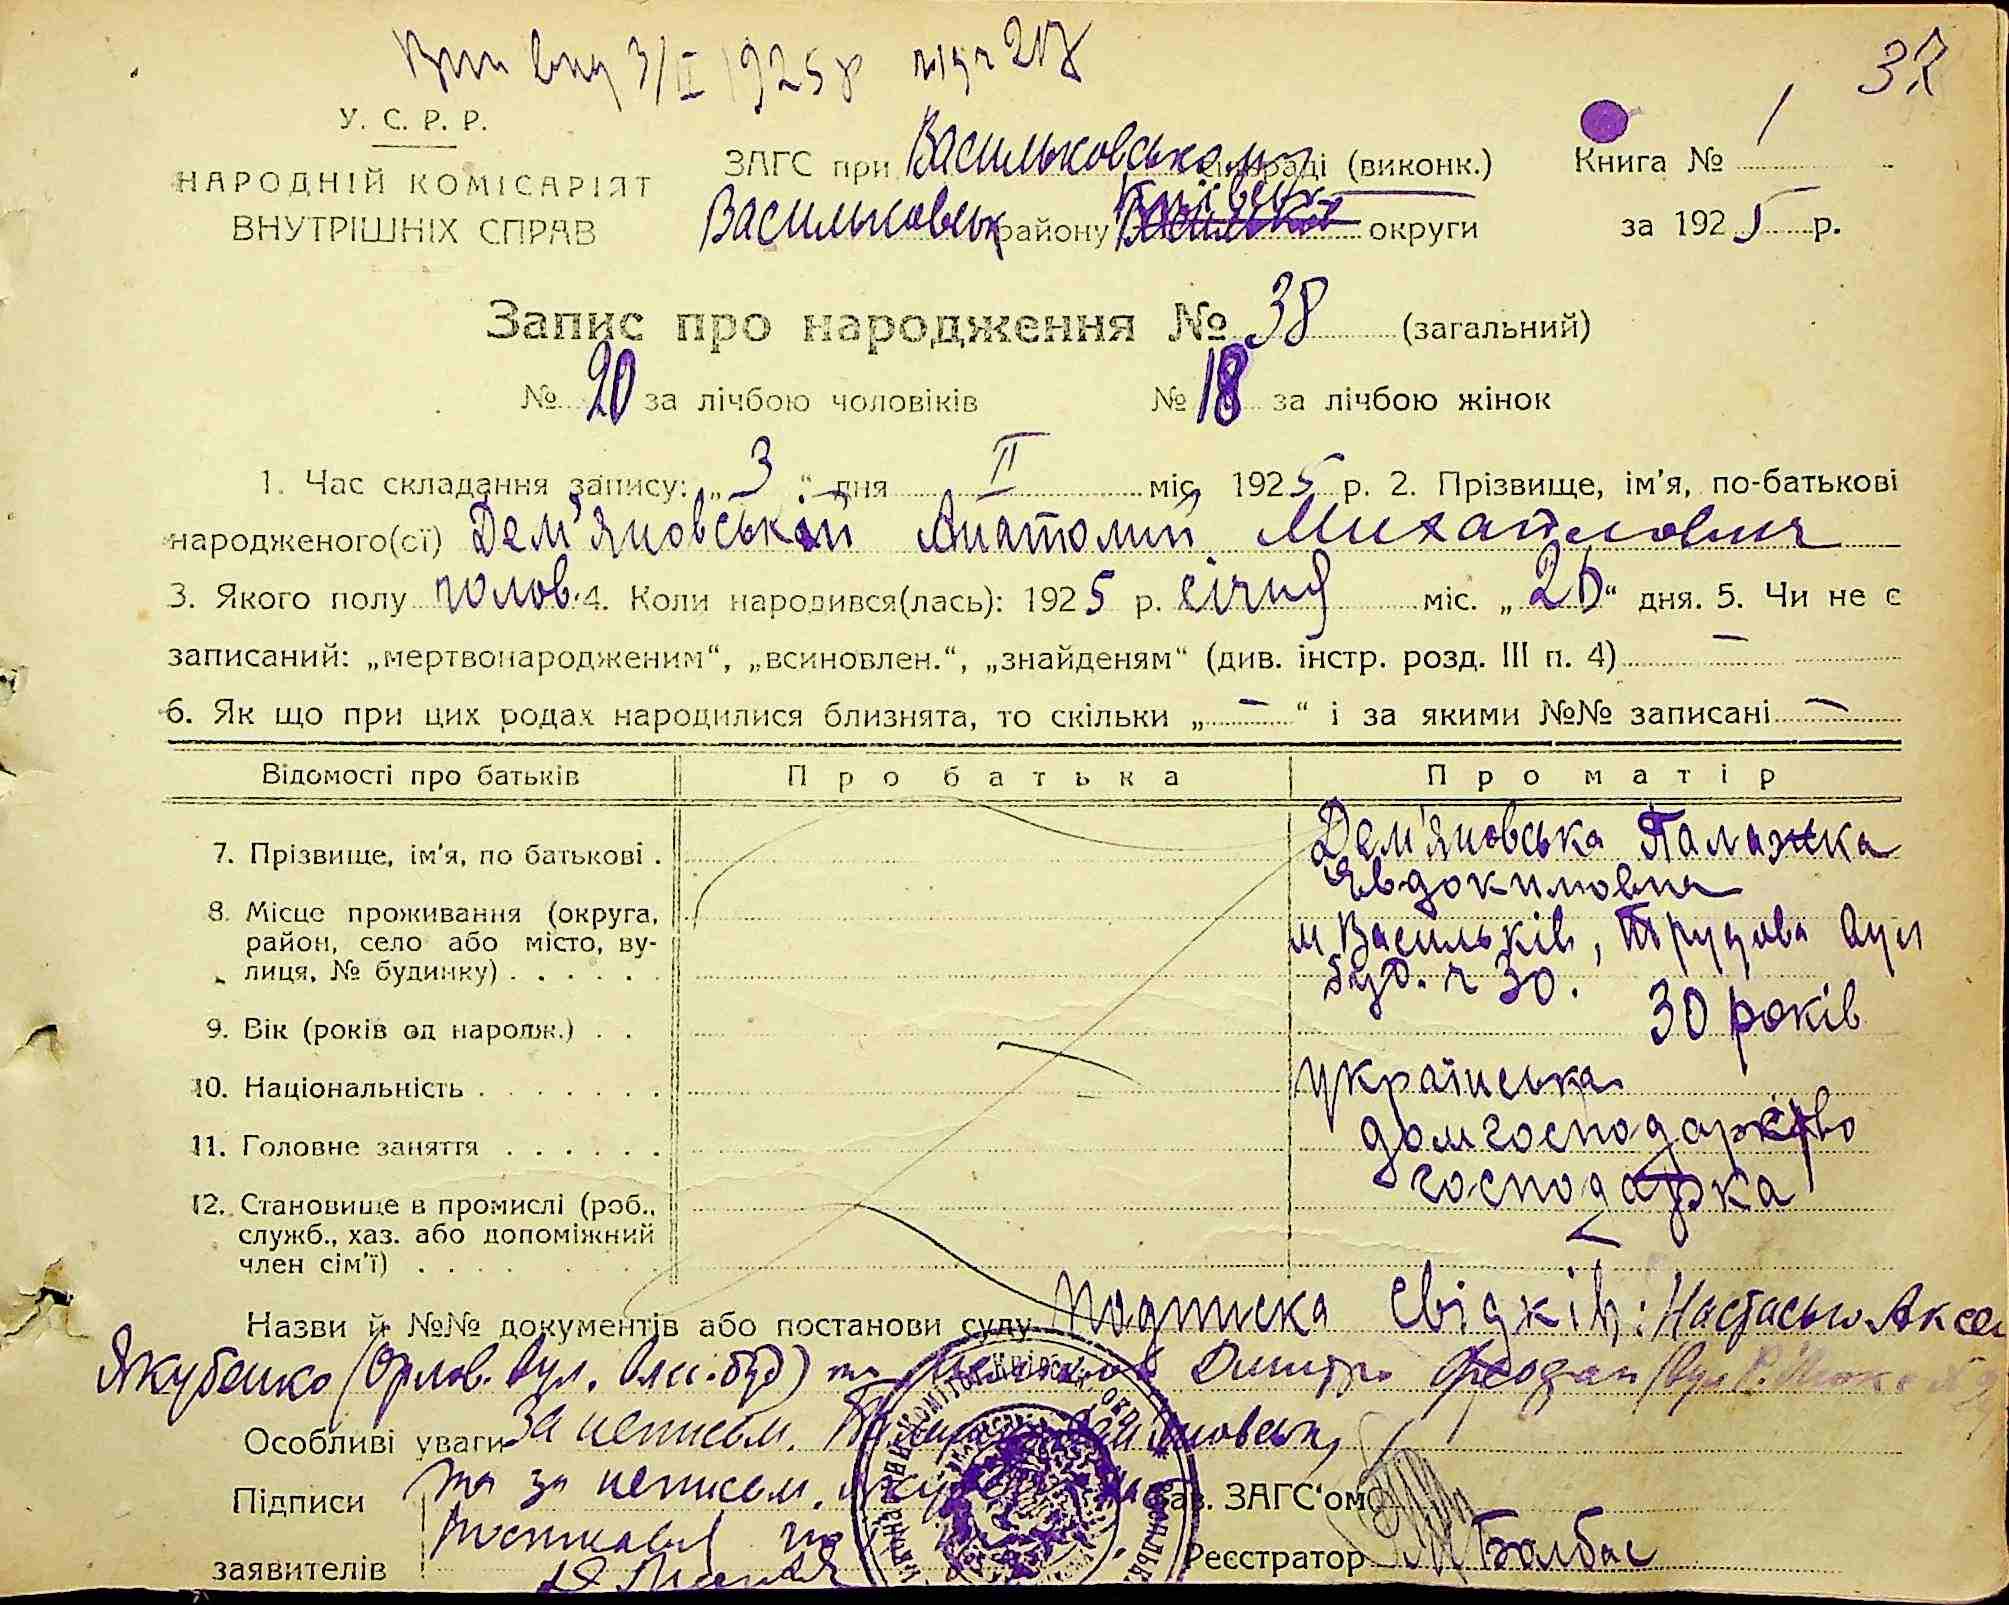 3/II 1925 р 217
37
У. С. Р. Р.
НАРОДНІЙ КОМІСАРІЯТ
ВНУТРІШНІХ СПРАВ
ЗАГС при Васильковському сільраді (виконк.)
Васильковськ району Київськ округи
Книга № 1
за 1925 р.
Запис про народження № 38 (загальний)
№ 20 за лічбою чоловіків № 18 за лічбою жінок
1. Час складання запису: „3“ дня II міс. 1925 р. 2. Прізвище, ім'я, по-батькові
народженого(сї) Дем'яновський Анатолий Михайлович
3. Якого полу чолов. 4. Коли народився(лась): 1925 р. січня міс. „26“ дня. 5. Чи не є
записаний: „мертвонародженим“, „всиновлен.“, „знайденям“ (див. інстр. розд. III п. 4) —
6. Як що при цих родах народилися близнята, то скільки „—“ і за якими №№ записані —
Відомості про батьків Про батька Про матір
7. Прізвище, ім'я, по батькові . Дем'яновська Палажка
Євдокимовна
8. Місце проживання (округа,
район, село або місто, ву-
лиця, № будинку) . . . . . .
м Васильків, Трудова вул
буд. ч 30.
9. Вік (років од народж.) . . 30 років
10. Національність . . . . . . . українська
11. Головне заняття . . . . . . домгосподарство
12. Становище в промислі (роб.,
служб., хаз. або допоміжний
член сім'ї) . . . .
господарка
Назви й №№ документів або постанови суду Подписка свідків: Настасья
Якубенко (Орлов. вул. буд) та Дмитро
Особливі уваги За неписьм. Дем'яновськ
Підписи та за неписьм.
заявителів
Зав. ЗАГС'ом
Реєстратор Балбас